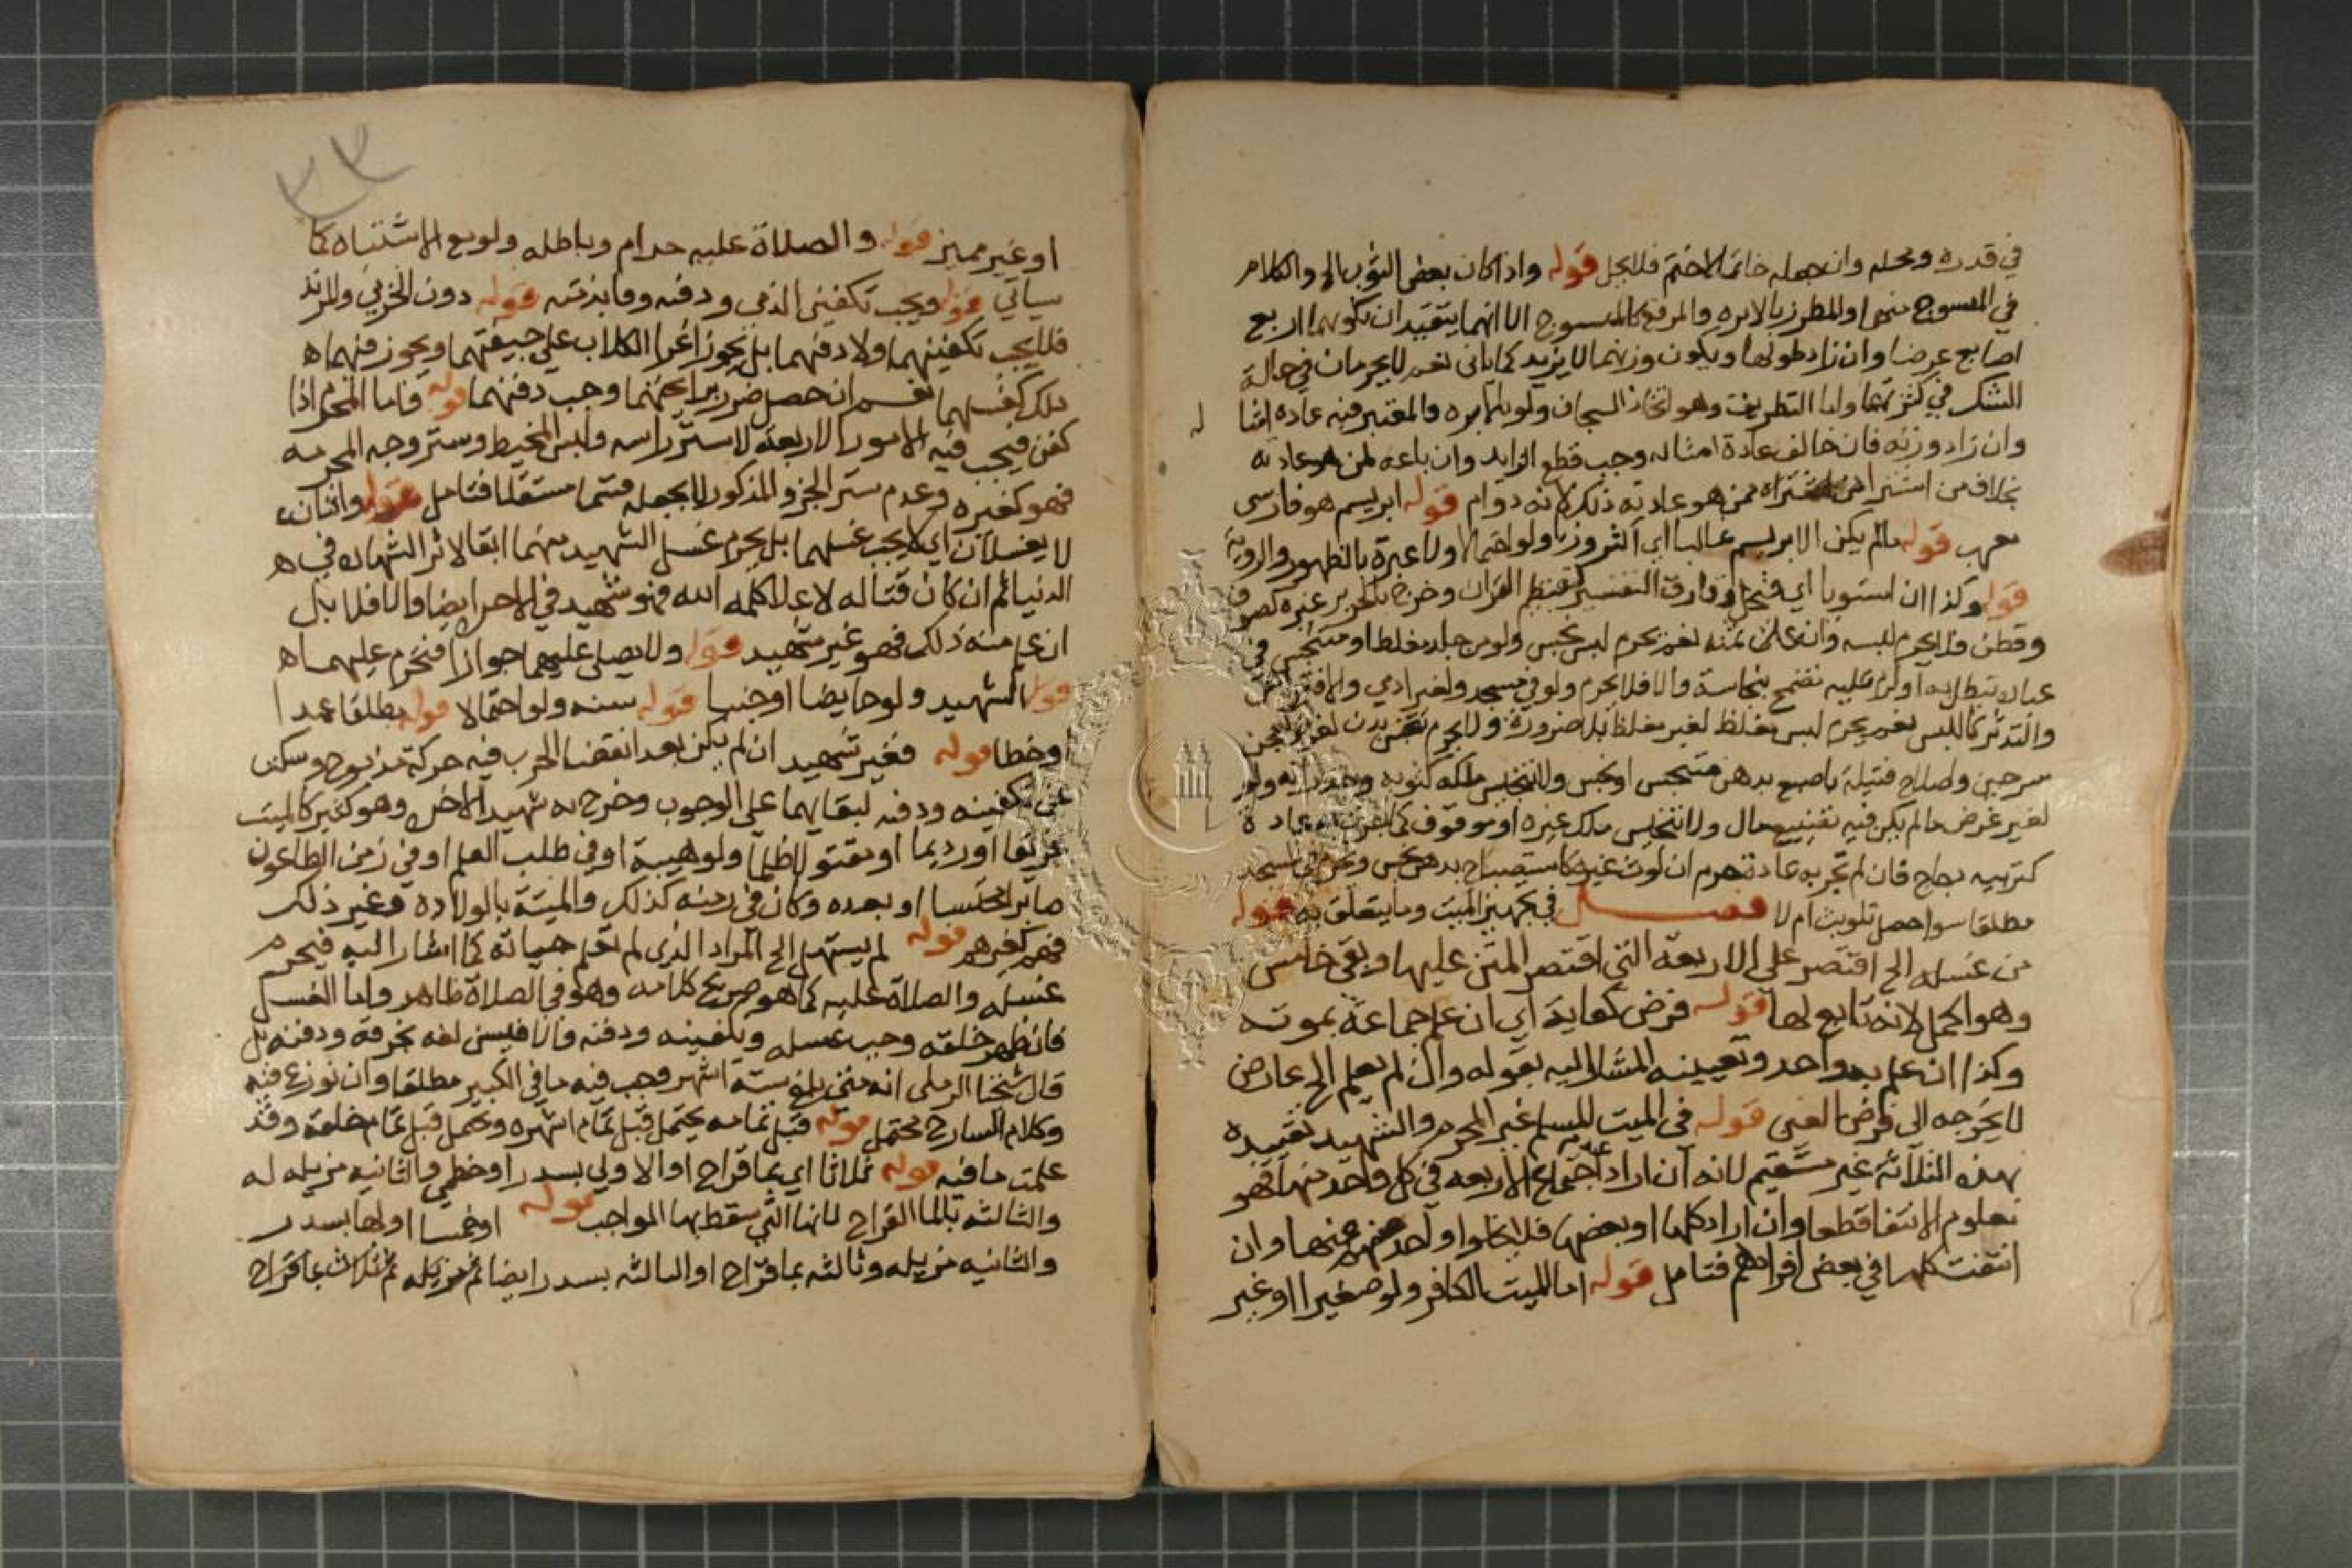 في قدره ومحله وان جعله خاتما لا ختم فلا يحل قوله واذا كان بعض الثوب الخ والكلام
في المنسوج منهما والمطرز بالابره والمرقع كالمنسوج الا انهما يتقيدان بكونهما اربع
اصابع عرضا وان زاد طولها وبكون وزنهما لا يزيد كما ياتى نعم لا يحرمان في حالة
الشك في كثرتهما واما التطريف وهو اتخاذ السجاف ولو بالابره فالمعتبر فيه عادة امثا له
وان زاد وزنه فان خالف عادة امثاله وجب قطع الزايد وان باعه لمن هو عادته
بخلاف من اشتراه ممن هو عادته ذلك لانه دوام قوله ابريسم هو فارسى
معرب قوله مالم يكن الابريسم غالبا اي اكثر وزنا ولو احتمالا ولا عبرة بالظهور والروية
قوله وكذا ان استويا اي فيحل وفارق التفسير تعظيم القران وخرج بالحرير غيره كصوف
وقطن فلا يحرم لبسه وان غلا ثمنه نعم يحرم لبس نجس ولو من جلد مغلظ او متنجس في
عباده تبطل به او لزم عليه تضمخ بنجاسة والا فلا يحرم ولو في مسجد ولغير ادمي والافتراش
والتدثر كاللبس نعم يحرم لبس مغلظ لغير مغلظ بلا ضرورة ولا يحرم تنجس بدن لغرض كعجن
سرجين واصلاح فتيلة باصبع بدهن متنجس او نجس ولا تنجيس ملكه كثوبه وجداره ولو
لغير غرض مالم يكن فيه تضييع مال ولا تنجيس ملك غيره او موقوف عادة
كتربيه دجاج فان لم تجر به عادة حرم ان لوث غيره كاستصباح بدهن نجس ونحرم في المسجد
مطلقا سوا حصل تلويث ام لا فصل في تجهيز الميت وما يتعلق به قوله
من غسله الخ اقتصر على الاربعه التي اقتصر المتن عليها وبقى خامس
وهو الحمل لانه تابع لها قوله فرض كفاية اي ان علم جماعة بموته
وكذا ان علم به واحد وتعيينه المشار اليه بقوله وان لم يعلم الخ عارض
لا يخرجه الى فرض العين قوله في الميت المسلم غير المحرم والشهيد تقييده
بهذه الثلاثة غير مستقيم لانه ان اراد اجتماع الاربعه في كل واحد منها فهو
معلوم الانتفا قطعا وان اراد كلها او بعضها فلا يخلوا واحد منهم عنها وان
انتفت كلها في بعض افرادهم فتامل قوله اما الميت الكافر ولو صغيرا او غير
او غير مميز قوله والصلاة عليه حرام وباطله ولو مع الاشتباه كما
سياتي قوله ويجب تكفين الذمى ودفنه وفا بذمته قوله دون الحربي والمرتد
فلا يجب تكفينهما ولا دفنهما بل يجوز اغرا الكلاب على جيفتهما ويجوز فيهما
ذلك كغسلهما نعم ان حصل ضرر برايحتهما وجب دفنهما قوله واما المحرم اذا
كفن فيجب فيه الامور الاربعة لا ستر راسه ولبس المخيط وستر وجه المحرمه
فهو كغيره وعدم ستر الجزء المذكور لا يجعله قسما مستقلا فتامل قوله واثنان
لا يغسلان اي لا يجب غسلهما بل يحرم غسل الشهيد منهما ابقا لاثر الشهاده في
الدنيا ثم ان كان قتاله لاعلا كلمة الله فهو شهيد في الاخره ايضا والا فلا بل
ان علم منه ذلك فهو غير شهيد قوله ولا يصلى عليهما جوازا فتحرم عليهما
قوله الشهيد ولو حايضا او جنبا قوله سنه ولو احتمالا قوله مطلقا عمدا
وخطا قوله فغير شهيد ان لم يكن بعد انقضا الحرب فيه حركة مذبوح وسكت
عن تكفينه ودفنه لبقايهما على الوجوب وخرج به شهيد الاخره وهو كثير كالميت
غريقا او رديما او مقتولا ظلما ولو هيبة او في طلب العلم او في زمن الطاعون
صابرا محتسبا او بعده وكان في زمنه كذلك والميتة بالولادة وغير ذلك
فهم كغيرهم قوله لم يستهل الخ المراد الذي لم تعلم حياته كما اشار اليه فيحرم
غسله والصلاة عليه كما هو صريح كلامه وهو في الصلاة ظاهر واما الغسل
فان ظهر خلقه وجب غسله وتكفينه ودفنه والا فيسن لفه بخرقة ودفنه بل
قال شيخنا الرملى انه متى بلغ ستة اشهر وجب فيه ما في الكبير مطلقا وان نوزع فيه
وكلام الشارح محتمل قوله قبل تمامه يحتمل قبل تمام اشهره ويحتمل قبل تمام خلقه وقد
علمت ما فيه قوله ثلاثا اي بما قراح او الاولى بسدر او خطمي والثانيه مزيله له
والثالثه بالما القراح لانها التي سقط بها الواجب قوله او خمسا اولها بسدر
والثانيه مزيله وثالثه بما قراح او الثالثه بسدر ايضا ثم مزيله ثم ثلاث بما قراح